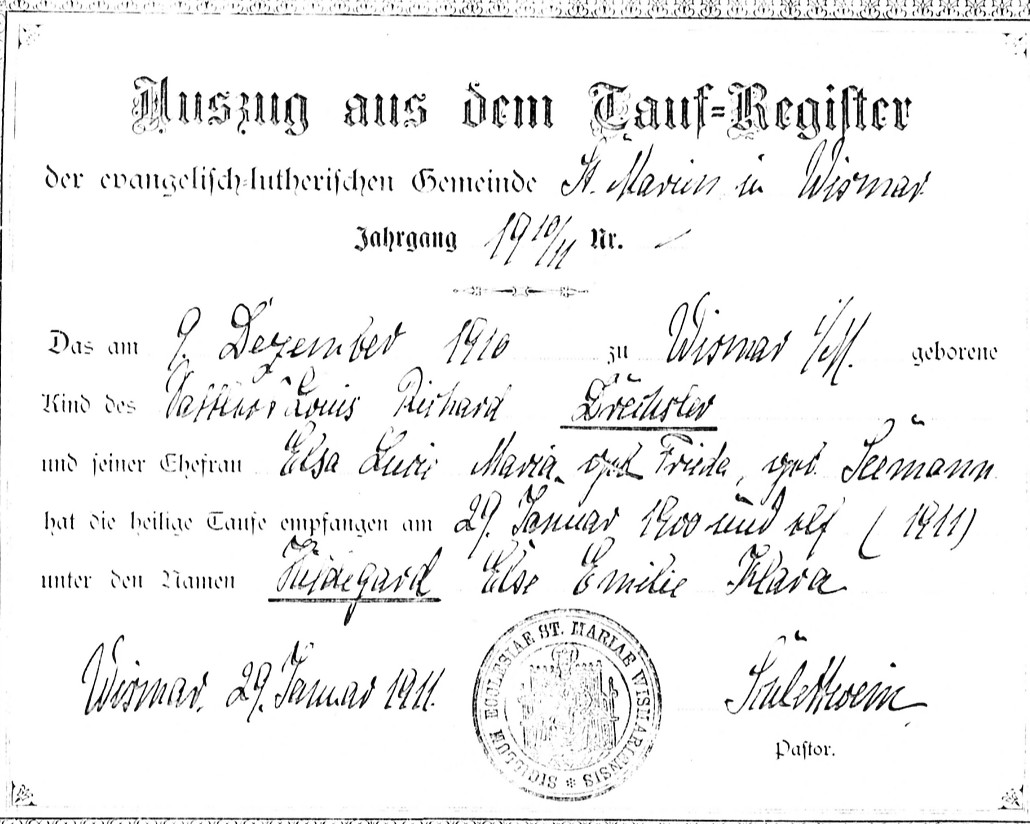 Auszug aus dem Tauf-Register
der evangelisch-lutherischen Gemeinde St. Marien in Wismar
Jahrgang 1910/11 Nr. –
Das am 9. Dezember 1910 zu Wismar i/M. geborene
Kind des Louis Richard Drechsler
und seiner Ehefrau Elsa Lucie Maria Frieda, geb. Seemann
hat die heilige Taufe empfangen am 29. Januar 1900 und elf (1911)
unter den Namen Hildegard Else Emilie Klara
Wismar, 29. Januar 1911.
SIGILLUM ECCLESIAE ST. MARIAE WISMARIENSIS
Pastor.